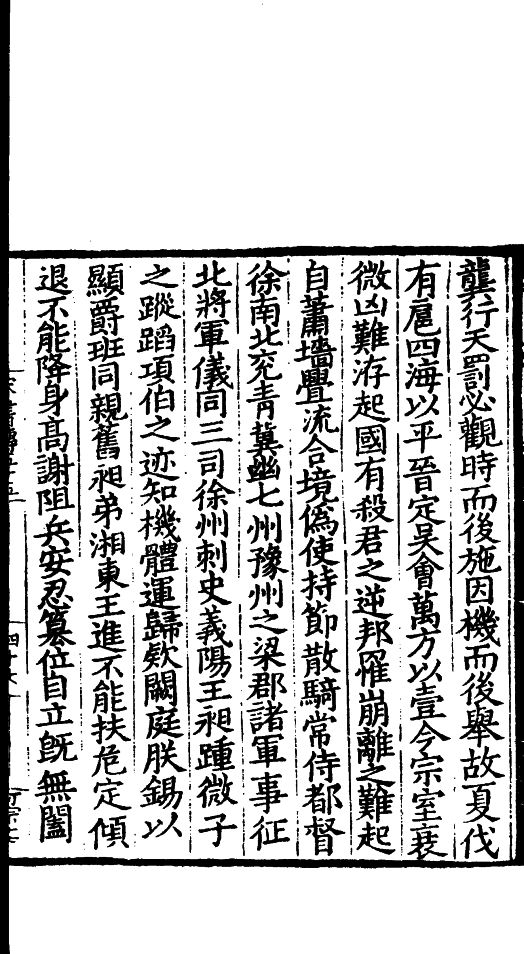 龔行天罰必觀時而後施因機而後舉故夏伐
有扈四海以平晉定吳會萬方以壹今宗室衰
微凶難洊起國有殺君之逆邦罹崩離之難起
自蕭墻釁流合境僞使持節散騎常侍都督
徐南北兖青冀幽七州豫州之梁郡諸軍事征
北將軍儀同三司徐州刺史義陽王昶踵微子
之蹤蹈項伯之迹知機體運歸欵闕庭朕錫以
顯爵班同親舊昶弟湘東王進不能扶危定傾
退不能降身高謝阻兵安忍篡位自立旣無闔